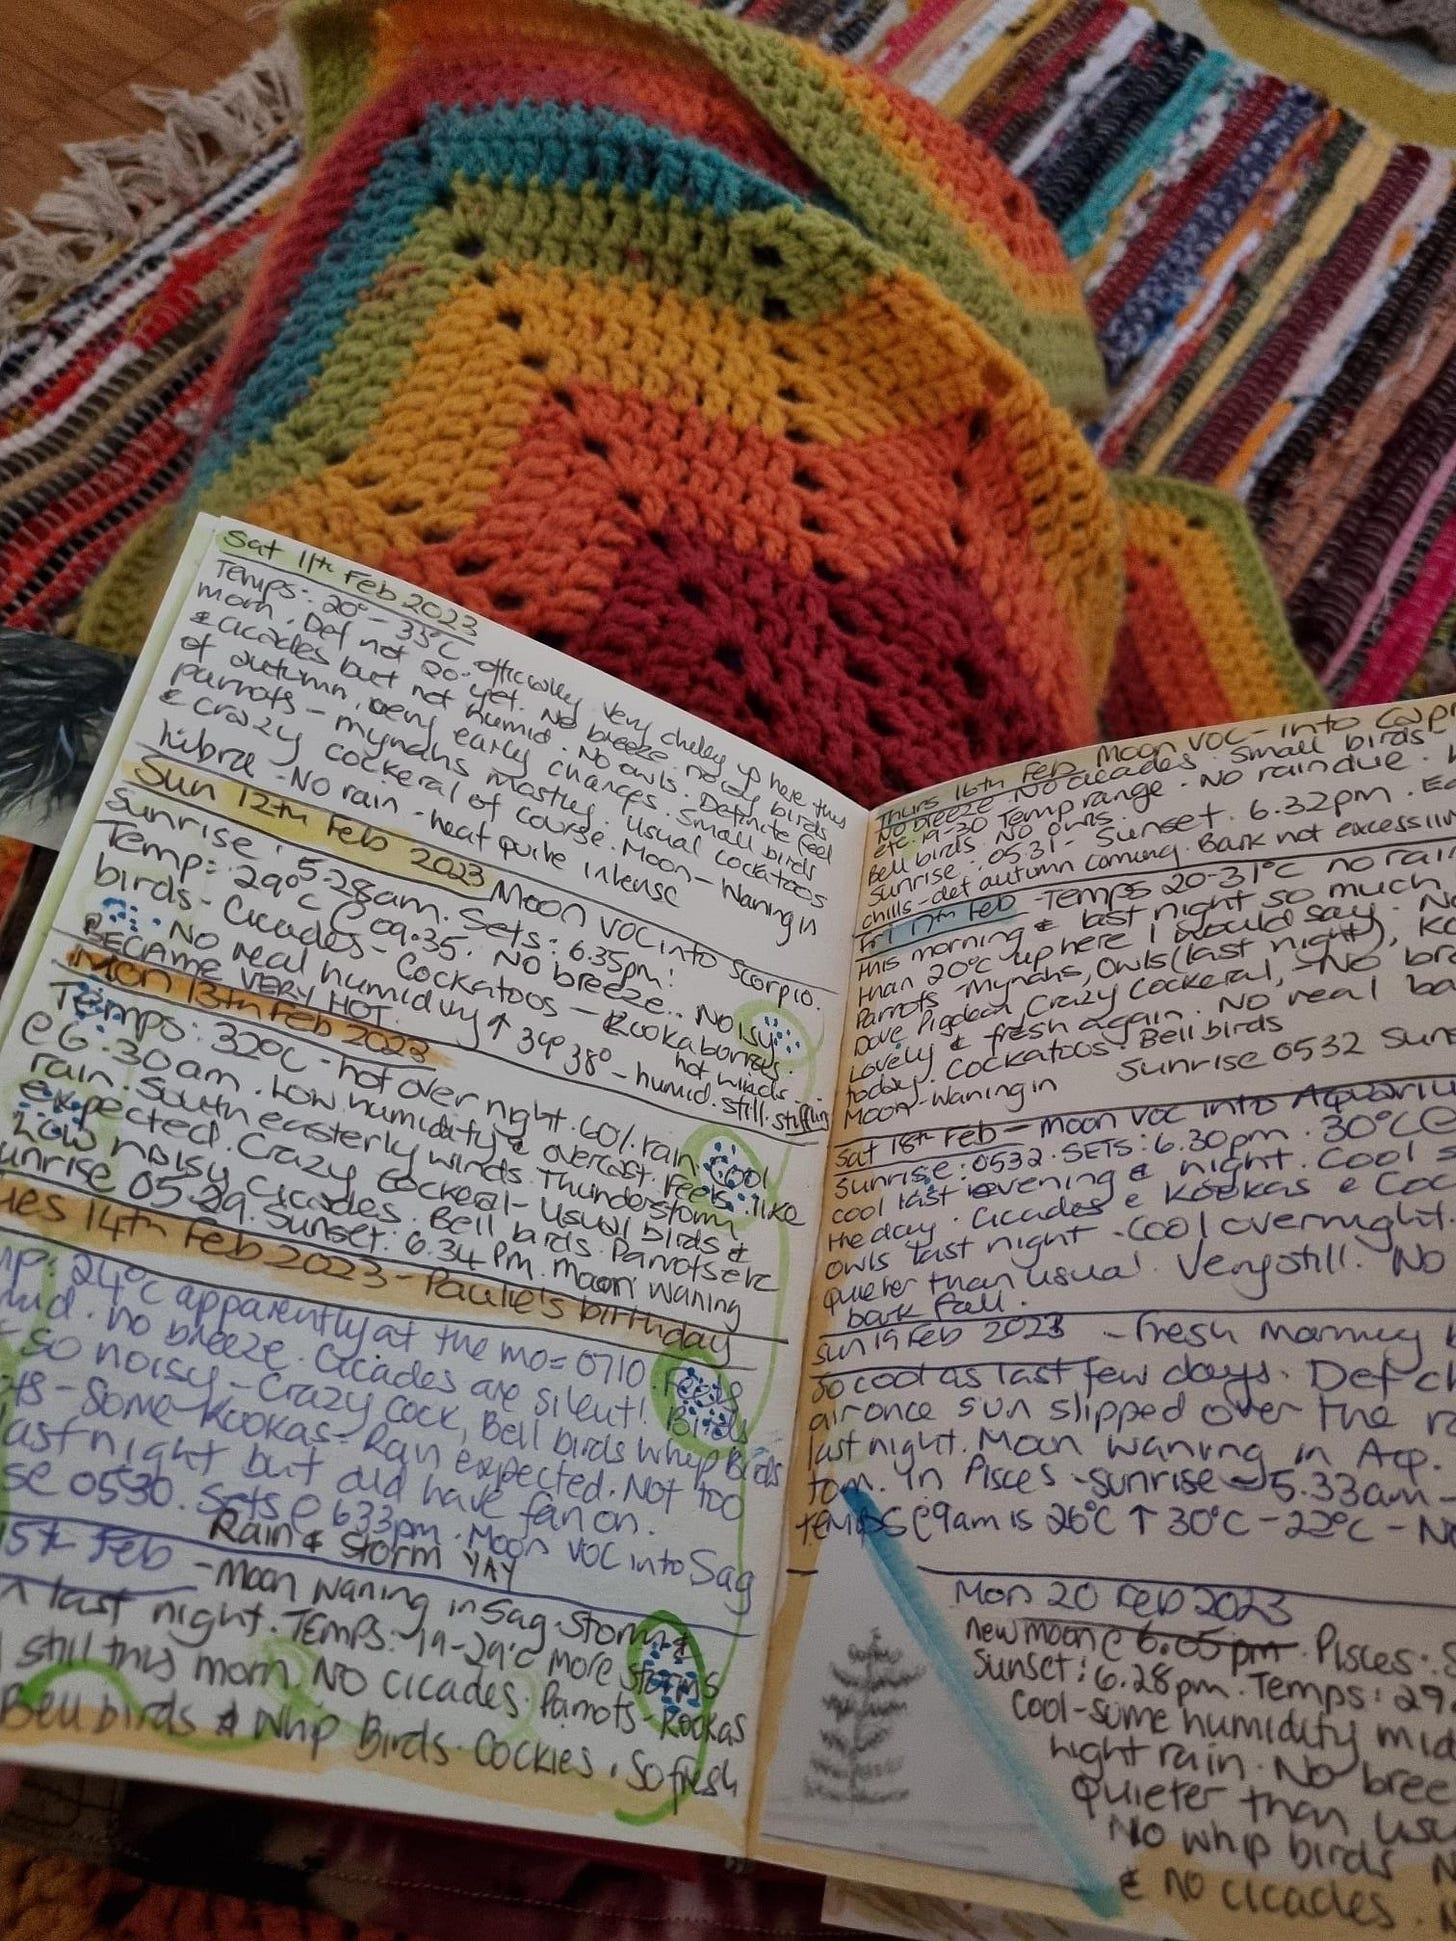 Sat 11th Feb 2023
Temps: 20° - 33°C officially. Very chilly up here this
morn. Def not 20 yet. No breeze. noisy birds
& cicadas but not humid. No owls. Definite feel
of autumn, very early chances. Small birds
parrots - mynahs mostly. Usual cockatoos
& crazy cockeral of course. Moon - Waning in
libra - No rain - heat quite intense
Sun 12th Feb 2023 Moon VOC into Scorpio.
Sunrise: 5.28am. Sets: 6.35pm.
Temp: 29°C @ 09.35. No breeze.. Noisy
birds - Cicadas - Cockatoos - Kookaburras.
No real humidity ↑ 34° 38° - hot winds..
BECAME VERY HOT. humid. still. stifling
Mon 13th Feb 2023
Temps: 32°C - hot over night. 60% rain. Cool
@ 6.30am. Low humidity & overcast. Feels like
rain. South easterly winds. Thunderstorm
expected. Crazy Cockeral - Usual birds &
Low noisy cicadas. Bell birds. Parrots etc
unrise 05.29. Sunset: 6.34 PM. Moon waning
ues 14th Feb 2023 - Paulie's birthday
mp: 24°C apparently at the mo = 0710. Feels
mid. No breeze. Cicadas are silent! Birds
so noisy - Crazy cock, Bell birds Whip Birds
- Some Kookas - Rain expected. Not too
last night but did have fan on.
se 0530. Sets @ 633pm. Moon VOC into Sag
Rain & Storm YAY
15th Feb - Moon waning in Sag. Storm &
last night. TEMPS: 19-29°C more storms
still this morn. No cicadas. Parrots - Kookas
Bell birds & Whip Birds. Cockies. So fresh
Thurs 16th Feb Moon VOC - into Capri
No breeze. No cicadas. Small birds
etc. 19-30 Temp range. No rain due.
Bell birds. No owls.
Sunrise: 0531 - Sunset. 6.32pm.
chills - def autumn coming. Bark not excessiv
Fri 17th Feb - Temps 20-31°C no rain
this morning & last night so much
than 20°C up here I would say.
Parrots - Mynahs, Owls (last night),
Dove Pigdeon, Crazy Cockeral, - No bre
Lovely & fresh again. No real ba
today. Cockatoos. Bell birds
Moon - Waning in Sunrise 0532 Sun
Sat 18th Feb - moon VOC into Aquariu
Sunrise: 0532. SETS: 6.30pm. 30°C @
cool last evening & night. Cool s
the day. Cicadas & Kookas & Coc
owls last night - Cool overnight
quieter than usual. Very still. No
bark fall.
Sun 19 Feb 2023 - Fresh morning
so cool as last few days. Def ch
air once sun slipped over the r
last night. Moon waning in Aq.
tom. in Pisces - sunrise - 5.33am -
TEMPS @ 9am is 26°C ↑ 30°C - 22°C - No
Mon 20 Feb 2023
new moon @ 6.05pm. Pisces. S
Sunset: 6.28pm. Temps: 29
Cool - some humidity mid
night rain. No bree
Quieter than usu
No whip birds N
& no cicadas.